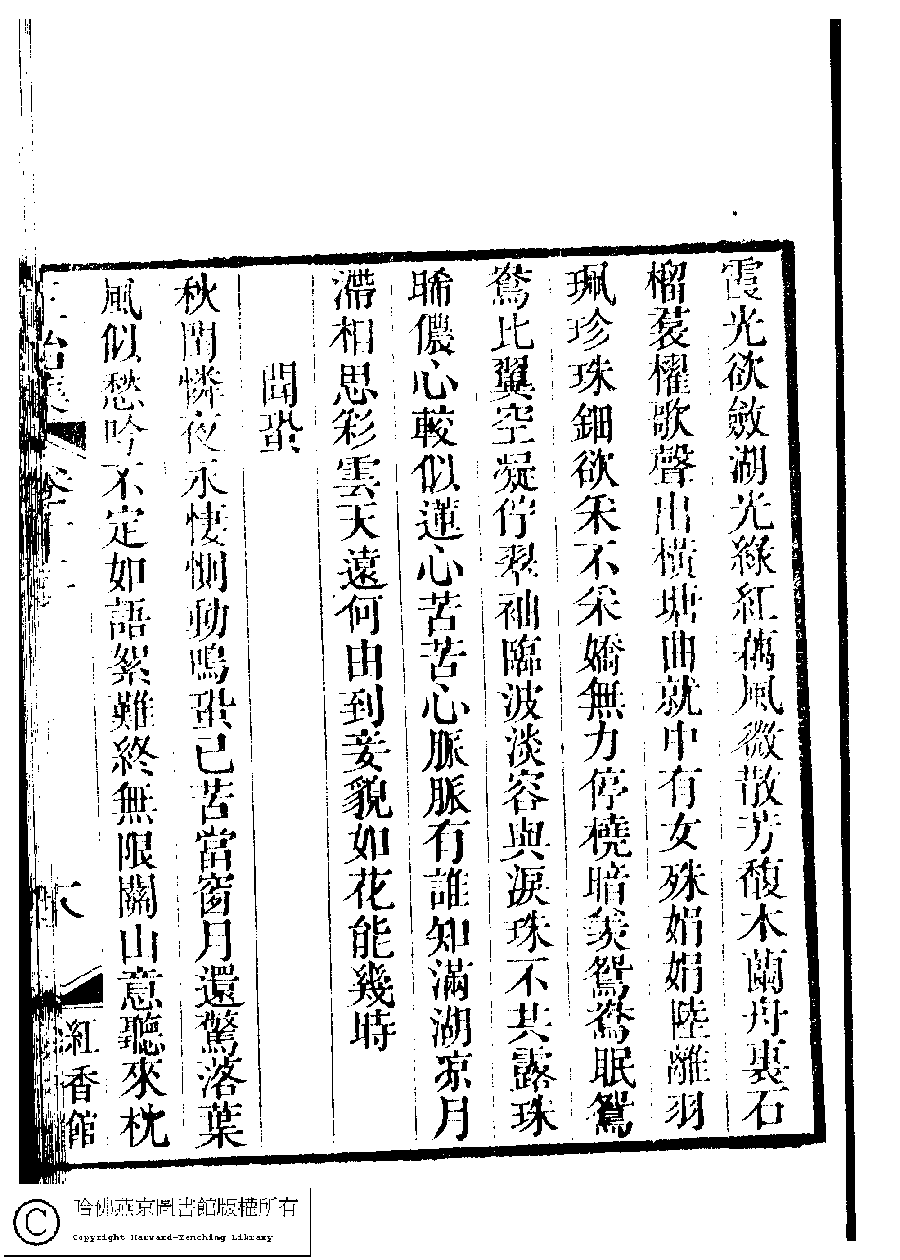 霞光欲斂湖光綠紅藕風微散芳馥木蘭舟裏石
榴裠櫂歌聲出橫塘曲就中有女殊娟娟陸離羽
珮珍珠鈿欲采不采嬌無力停橈暗羨鴛鴦眠鴛
鴦比翼空凝佇翠袖臨波淡容與淚珠不共露珠
晞儂心較似蓮心苦苦心脈脈有誰知滿湖凉月
滯相思彩雲天遠何由到妾貌如花能幾時
聞蛩
秋閨憐夜永悽惻動鳴蛩已苦當窗月還驚落葉
風似愁吟不定如語絮難終無限關山意聽來枕
始集
卷十二
紅香館
哈佛燕京圖書館版權所有
Copyright Harvard-Yenching Library